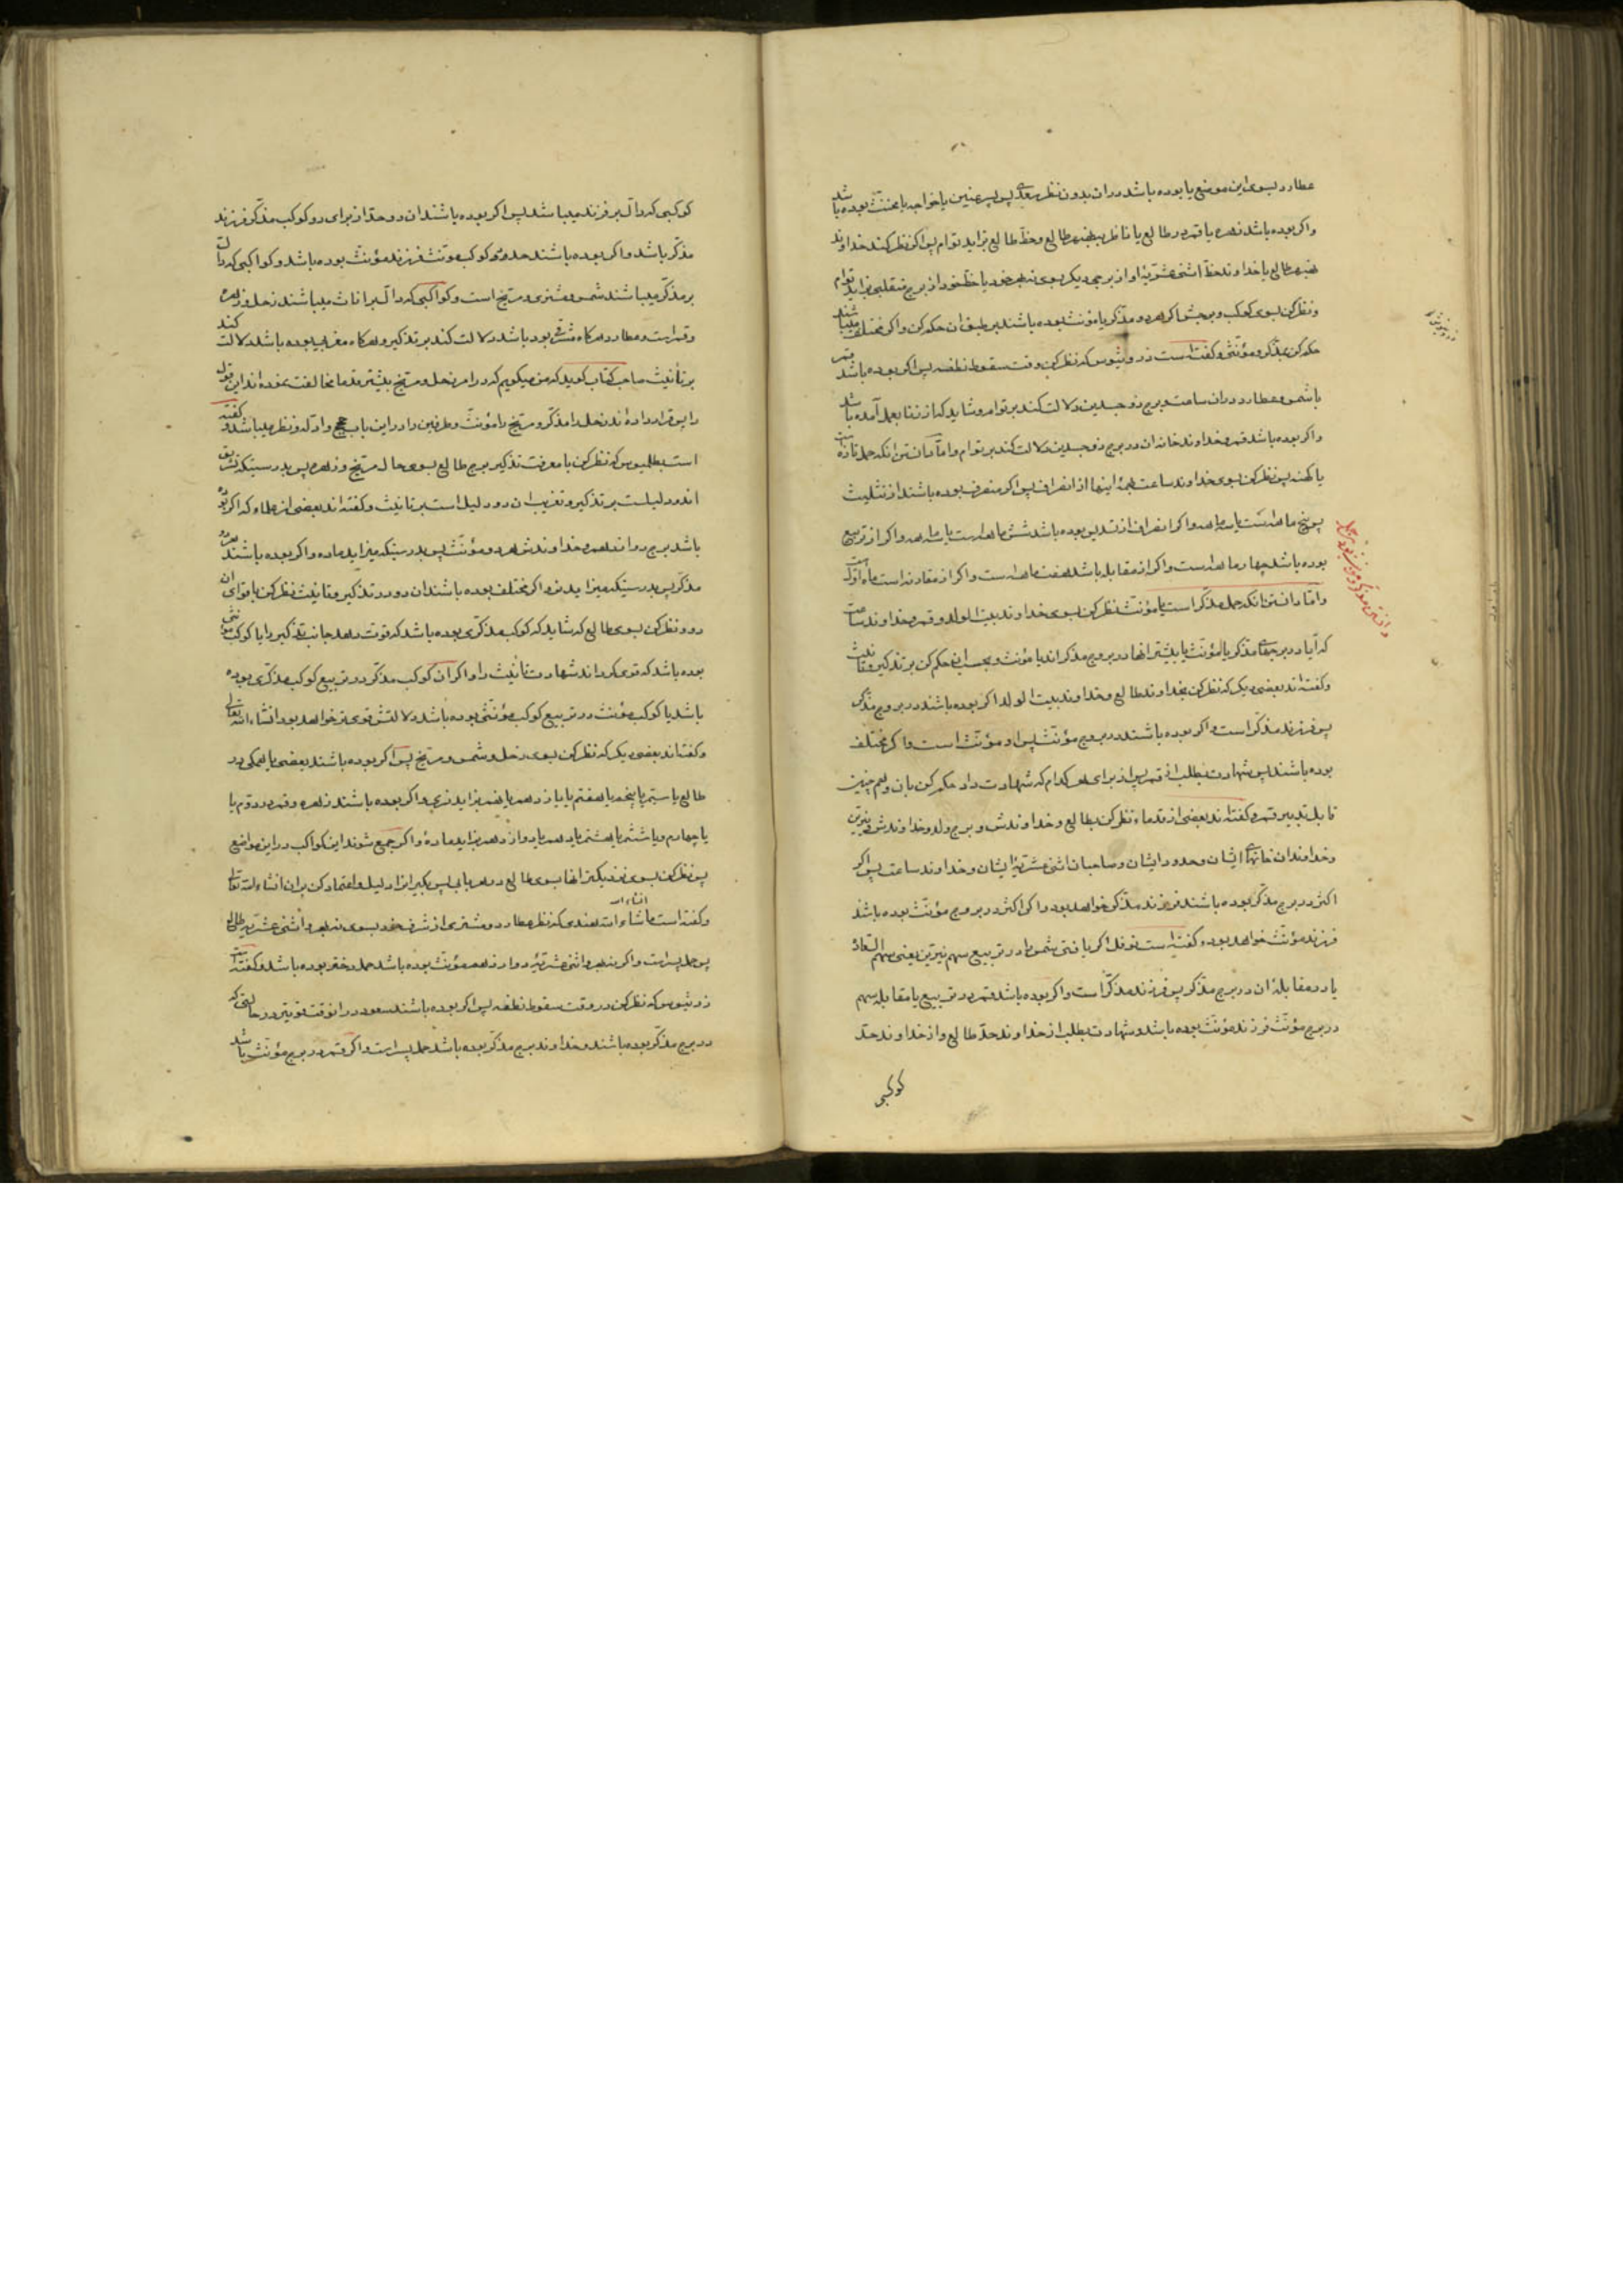 عطارد بسوی این موضع یا بوده باشد در ان بدون نظر پس پسر عنین یا خواجه یا مخنث بوده باشد
واکر بوده باشد زهره یا قمر در طالع یا ناظر طالع وخط طالع بزاید توام پس اکر نظر کند خداوند
طالع یا خداوند خط اثنی عشریهٔ او از برجی دیکر بسوی خود یا خط خود از برج منقلبی بزاید توام
ونظر کن بسوی کوکب وبرجش اکر هر دو مذکر یا مؤنث بوده باشند بر طبق ان حکم کن واکر مختلف میباشند
حکم کن بمذکر ومؤنثی وکفته است ذروثیوس که نظر کن وقت سقوط نطفه پس اکر بوده باشد قمر
با شمس وعطارد در ان ساعت وبرج ذوجسدین دلالت کند بر توام وشاید که از زنا بعمل آمده باشد
واکر بوده باشد قمر وخداوند خانه ان در برج ذوجسدین دلالت کند بر توام واما دانستن انکه حمل تازه است
یا کهنه پس نظر کن بسوی خداوند ساعت اینها از انصراف پس اکر منصرف بوده باشند از تثلیث
پس پنج ماهه است یا سه ماهه واکر انصراف از تسدیس بوده باشد شش ماهه است یا سه ماهه واکر از تربیع
بوده باشد چهار ماهه است واکر از مقابله باشد هفت ماهه است واکر از مقارنه است ماه اول است
واما دانستن انکه حمل مذکر است یا مؤنث نظر کن بسوی خداوند بیت الولد وقمر وخداوند ساعت
که آیا در برجهای مذکر یا مؤنث یا بیشتر انها در بروج مذکر اند یا مؤنث وبحسب ان حکم کن بر تذکیر وتانیث
وکفته اند بعضی دیکر که نظر کن بخداوند طالع وخداوند بیت الولد اکر بوده باشند در بروج مذکر
پس فرزند مذکر است واکر بوده باشند در بروج مؤنث پس او مؤنث است واکر مختلف
بوده باشند پس شهادت بطلب از قمر پس از برای هر کدام که شهادت داد حکم کن بان وهم چنین
قابل تدبیر قمر وکفته اند بعضی از قدماء نظر کن بطالع وخداوندش وبرج ولد وخداوندش ونیرین
وخداوندان خانهای ایشان وحدود ایشان وصاحبان اثنی عشریهٔ ایشان وخداوند ساعت پس اکر
اکثر در برج مذکر بوده باشند فرزند مذکر خواهد بود واکر اکثر در بروج مؤنث بوده باشند
فرزند مؤنث خواهد بود وکفته است نوفل اکر یافتی شمس را در تربیع سهم نیرین یعنی سهم السعادة
یا در مقابلهٔ ان در برج مذکر پس فرزند مذکر است واکر بوده باشد قمر در تربیع یا مقابله سهم
در برج مؤنث فرزند مؤنث بوده باشد وشهادت بطلب از خداوند حد طالع واز خداوند حد
کوکبی
کوکبی که دال بر فرزند میباشد پس اکر بوده باشند ان دو حد از برای دو کوکب مذکر فرزند
مذکر باشد واکر بوده باشند حد دو کوکب مؤنث فرزند مؤنث بوده باشد وکواکبی که دال
بر مذکر میباشند شمس ومشتری ومریخ است وکواکبی که دال بر اناث میباشند زحل وزهره
وقمر است وعطارد هرکاه مشرقی بود باشد دلالت کند بر تذکیر وهرکاه مغربی بوده باشد دلالت کند
بر تأنیث صاحب کتاب کوید که من میکویم که در امر زحل ومریخ بیشتر قدما مخالفت نموده اند این قول
را پس قرار داده اند زحل را مذکر ومریخ را مؤنث وطرفین را در این باب حجج وادله ونظر میباشد وکفته
است بطلمیوس که نظر کن با معرفت تذکیر برج طالع بسوی حال مریخ وزهره پس بدرستیکه تشریق
اندو دلیلست بر تذکیر وتغریب ان دو دلیل است بر تانیث وکفته اند بعضی از علماء که اکر بوده
باشد برج دوازدهم وخداوندش هر دو مؤنث پس بدرستیکه میزاید ماده واکر بوده باشند هر دو
مذکر پس بدرستیکه میزاید نر واکر مختلف بوده باشند ان دو در تذکیر وتانیث نظر کن باقوای ان
دو ونظر کن بسوی طالع که شاید که کوکب مذکری بوده باشد که قوت دهد جانب تذکیر را یا کوکب مؤنثی
بوده باشد که قوی کرداند شهادت تأنیث را واکر ان کوکب مذکر در تربیع کوکب مذکری بوده
باشد یا کوکب مؤنث در تربیع کوکب مؤنثی بوده باشد دلالتش قوی تر خواهد بود انشاء الله تعالی
وکفته اند بعضی دیکر که نظر کن بسوی زحل وشمس ومریخ پس اکر بوده باشند بعضی یا همکی در
طالع یا سیم یا پنجم یا هفتم یا یازدهم یا نهم بزاید نری واکر بوده باشند زهره وقمر در دوم یا
یا چهارم ویا ششم یا هشتم یا دهم یا دوازدهم بزاید ماده واکر جمع شوند این کواکب در این مواضع
پس نظر کن بسوی نزدیکتر انها بسوی طالع در هر بابی پس بکیر انرا دلیل واعتماد کن بران انشاء الله تعالی
وکفته است ماشاء الله هندی که نظر عطارد ومشتری از شرف خود بسوی نهبهر واثنی عشریه طالع
پس حمل پسر است واکر نهبهر واثنی عشریهٔ دوازدهم مؤنث بوده باشد حمل دختر بوده باشد وکفته است
ذروثیوس که نظر کن در وقت سقوط نطفه پس اکر بوده باشند سعود در انوقت قوی تر در حالتی که
در برج مذکر بوده باشند وخداوند برج مذکر بوده باشد حمل پسر است واکر قمر در برج مؤنث باشد